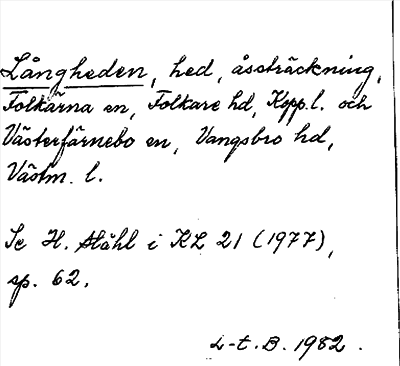 Långheden, hed, åssträckning,
Folkärna en, Folkare hd, Kopp.l. och
Västerfärnebo en, Vangsbro hd,
Västm. l.
Se H. Ståhl i KL 21 (1977),
sp. 62.
L-t. B. 1982.